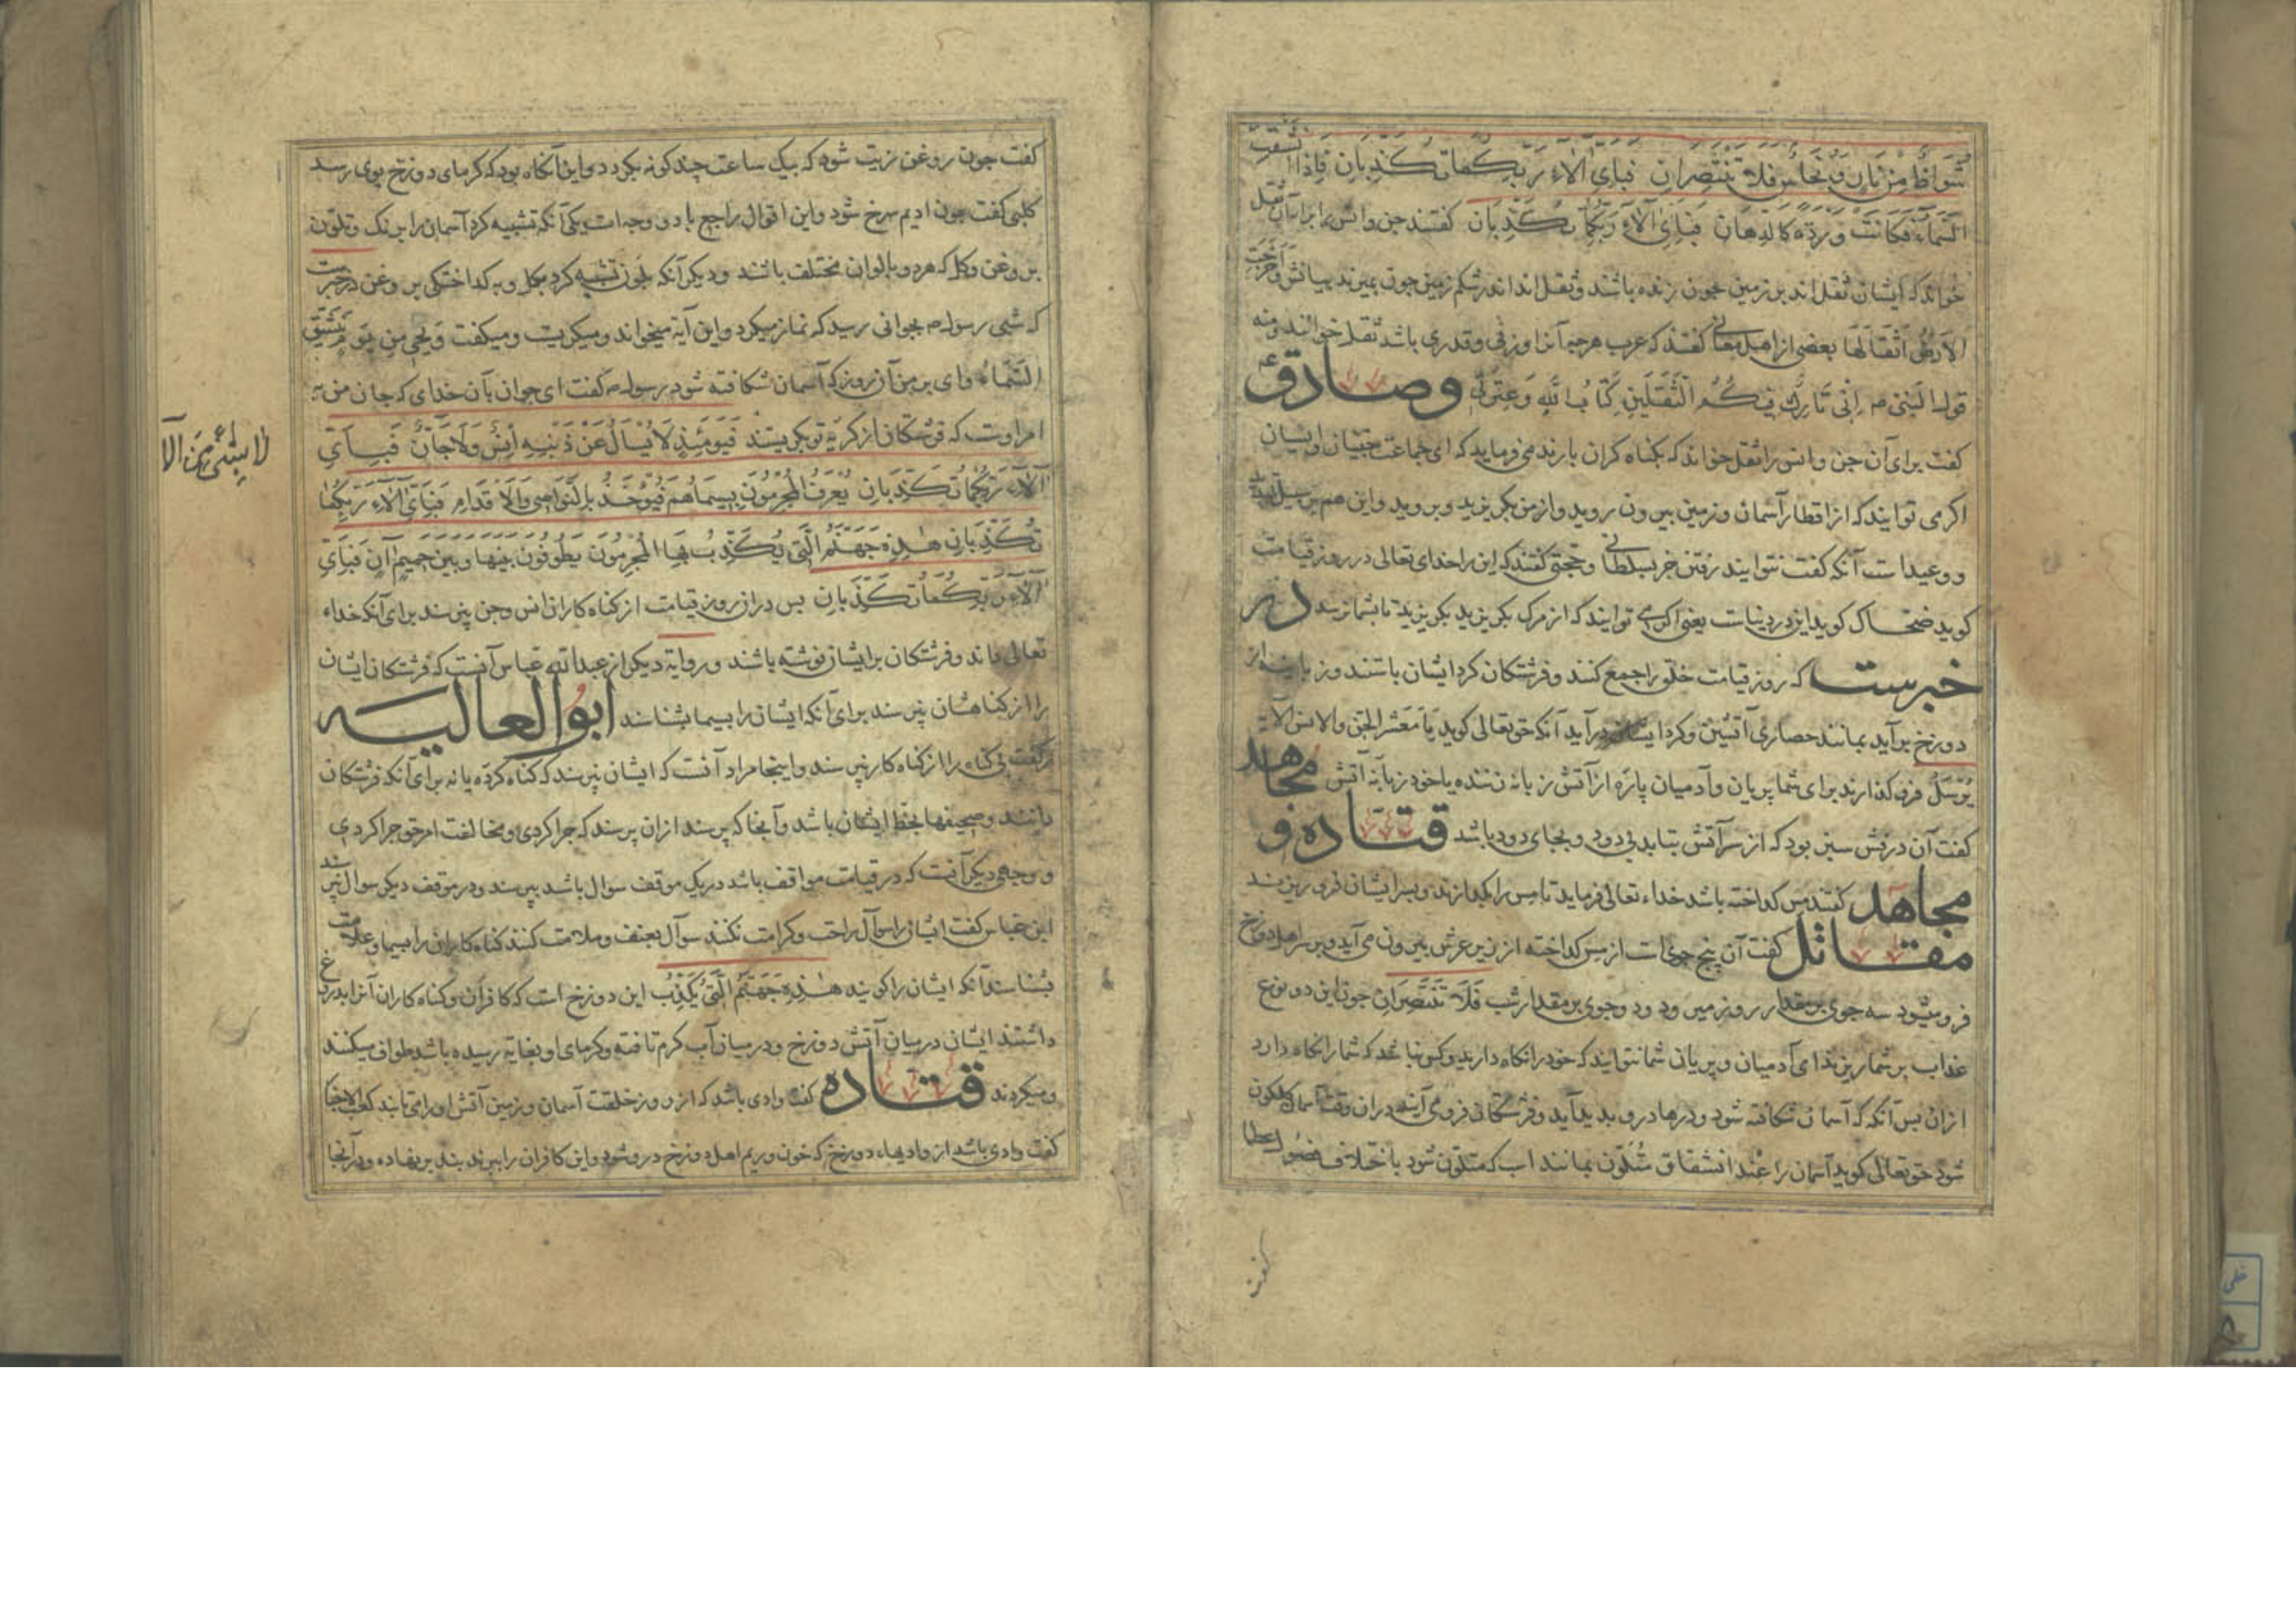 شُوَاظٌ مِنْ نَارٍ وَنُحَاسٌ فَلَا تَنْتَصِرَانِ فَبِأَيِّ آلَاءِ رَبِّكُمَا تُكَذِّبَانِ فَإِذَا انْشَقَّتِ
السَّمَاءُ فَكَانَتْ وَرْدَةً كَالدِّهَانِ فَبِأَيِّ آلَاءِ رَبِّكُمَا تُكَذِّبَانِ کفتند جن وانس را برای آن ثقل
خواند که ایشان ثقل اند بر زمین چون زنده باشند وثقل اند اندر شکم زمین جون بمیرند بیانش وَأَخْرَجَتِ
الْأَرْضُ أَثْقَالَهَا بعضی از اهل معانی کفتند که عرب هرجه آنرا وزنی وقدری باشد ثقل خوانند ومنه
قول النبی م إِنِّي تَارِكٌ فِيكُمُ الثَّقَلَيْنِ كِتَابَ اللهِ وَعِتْرَتِي وصادق ع
کفت برای آن جن وانس را ثقل خواند که بکناه کران بارند می فرماید که ای جماعت جنیان وانسیان
اکر می توانید که از اقطار آسمان وزمین بیرون روید واز من بکریزید وبروید واین هم بر سبیل
ووعید است آنکه کفت نتوانید رفتن جز بسلطانی وحجتی کفتند که این را خدای تعالی در روز قیامت
کوید ضحاک کوید این در دنیاست یعنی اکر می توانید که از مرک بکریزید بکریزید تا بشما نرسد در
خبرست که روز قیامت خلق را جمع کنند وفرشتکان کرد ایشان باشند وزبانیه از
دوزخ برآید بمانند حصاری آتشین وکرد ایشان درآید آنکه حق تعالی کوید یَا مَعْشَرَ الْجِنِّ والانس الآیة
يُرْسَلُ فرو کذارند برای شما پریان وآدمیان پارَه از آتش زبانه زننده یا خود زبانَه آتش مجاهد
کفت آن درفش سبز بود که از سر آتش بتابد بی دود وبجای دود باشد قتاده و
مجاهد کفتند مس کداخته باشد خداء تعالی فرماید تا مس را بکدازند وبسر ایشان فرو ریزند
مقاتل کفت آن پنج جوی است از مس کداخته از زیر عرش بیرون می آید وبر سر اهل دوزخ
فرو میشود سه جوی بر مقدار روز میرود ودو جوی بر مقدار شب فَلَا تَنْتَصِرَانِ جون این دو نوع
عذاب بر شما ریزند ای آدمیان وپریان شما نتوانید که خود را نکاه دارید وکس نباشد که شما را نکاه دارد
ازان پس آنکه که آسمان شکافته شود ودرها درو بدید آید وفرشتکان فرو می آیند دران وقت آسمان کلکون
شود حق تعالی کوید آسمان را عند انشقاق متلون بمانند اسب که متلون شود باختلاف فصول
کفت
کفت جون روغن زیت شود که بیک ساعت چند کونه بکردد واین آنکاه بود که کرمای دوزخ بوی رسد
کلبی کفت جون ادیم سرخ شود واین اقوال راجع با دو وجه است یکی آنکه تشبیه کرد آسمان را برنک وتلون
بروغن وکل که هر دو بالوان مختلف باشند ودیکر آنکه بلون تشبیه کرد بکل وبه کداختکی بروغن در خبرست
که شبی رسول م بجوانی رسید که نماز میکرد واین آیه میخواند ومیکریست ومیکفت وَيْحِي مِنْ يَوْمٍ تَنْشَقُّ
السَّمَاءُ وای بر من آن روز که آسمان شکافته شود رسول م کفت ای جوان بآن خدای که جان من به
امر اوست که فرشتکان از کریه تو بکریستند فَيَوْمَئِذٍ لَا يُسْأَلُ عَنْ ذَنْبِهِ إِنْسٌ وَلَا جَانٌّ فَبِأَيِّ
آلَاءِ رَبِّكُمَا تُكَذِّبَانِ يُعْرَفُ الْمُجْرِمُونَ بِسِيمَاهُمْ فَيُؤْخَذُ بِالنَّوَاصِي وَالْأَقْدَامِ فَبِأَيِّ آلَاءِ رَبِّكُمَا
تُكَذِّبَانِ هَذِهِ جَهَنَّمُ الَّتِي يُكَذِّبُ بِهَا الْمُجْرِمُونَ يَطُوفُونَ بَيْنَهَا وَبَيْنَ حَمِيمٍ آنٍ فَبِأَيِّ
آلَاءِ رَبِّكُمَا تُكَذِّبَانِ پس دران روز قیامت از کناه کاران انس وجن نپرسند برای آنکه خداء
تعالی داند وفرشتکان بر ایشان نوشته باشند وروایة دیکر از عبدالله عباس آنست که فرشتکان ایشان
را از کناهشان نپرسند برای آنکه ایشان را بسیما بشناسند ابو العالیه
کفت بی کناه را از کناه کار نپرسند واینجا مراد آنست که ایشان نپرسند که کناه کرده یا نه برای آنکه فرشتکان
دانند وصحیفها بخط ایشان باشد وآنجا که پرسند ازان پرسند که جرا کردی ومخالفت امر حق جرا کردی
ووجهی دیکر آنست که در قیامت مواقف باشد در یک موقف سوال باشد بپرسند ودر موقف دیکر سوال نپرسند
ابن عباس کفت ایشان را سوآل راحت وکرامت نکنند سوآل بعنف وملامت کنند کناه کاران را بسیما وعلامت
بشناسند آنکه ایشان را کویند هَذِهِ جَهَنَّمُ الَّتِي يُكَذِّبُ این دوزخ است که کافران وکناه کاران آنرا بدروغ
داشتند ایشان در میان آتش دوزخ ودر میان آب کرم تافته وکرمای او بغایة رسیده باشد طواف میکنند
ومیکردند قتاده کفت وادی باشد که از روز خلقت آسمان وزمین آتش او را می تابند کعب الاحبار
کفت وادی باشد از وادیهاء دوزخ که خون وریم اهل دوزخ درو شود واین کافران را ببرند بند بر نهاده ودرآنجا
لا بشئ من الآ